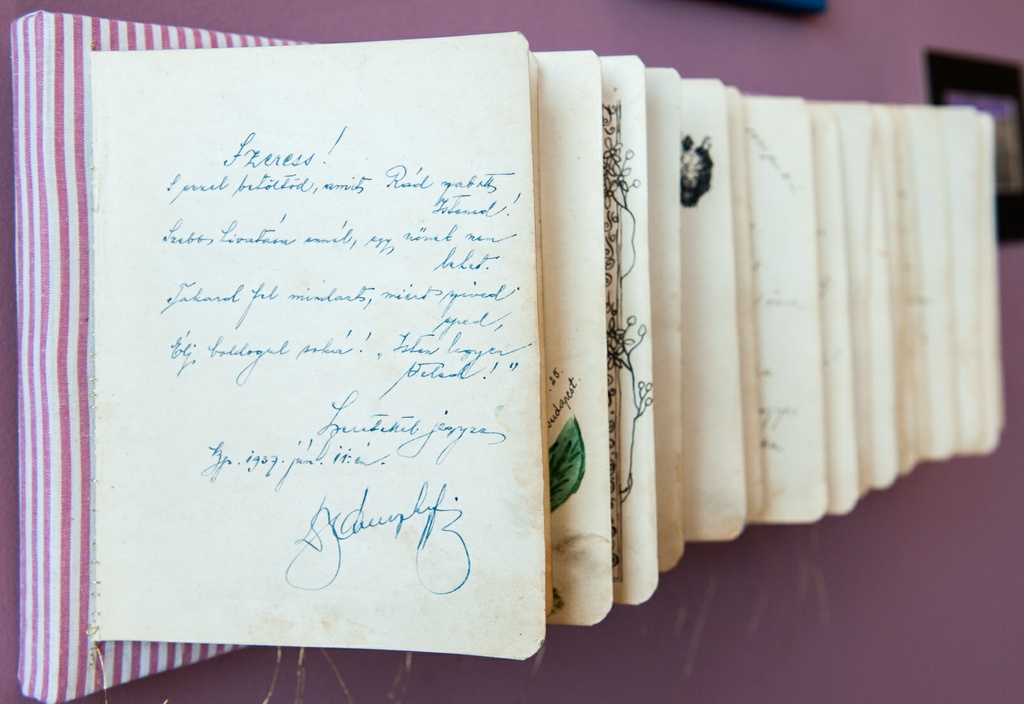 Szeress!
S ezzel betöltöd, amit Rád szabott
Istened!
Szebb hivatása ennél, egy nőnek nem
lehet.
Takard fel mindazt, miért szived
eped,
Élj boldogul soká! „Isten legyen
Veled!"
Szeretettel jegyzem
1937. jún. 11.-én.
. 25.
Budapest.